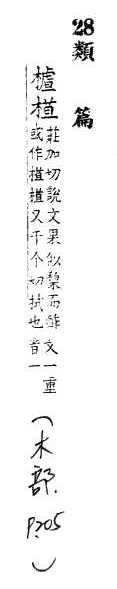 28類篇
樝柤
莊加切說文果似棃而酢文一重
或作楂樝又千个切拭也音一
(木部. P.205)